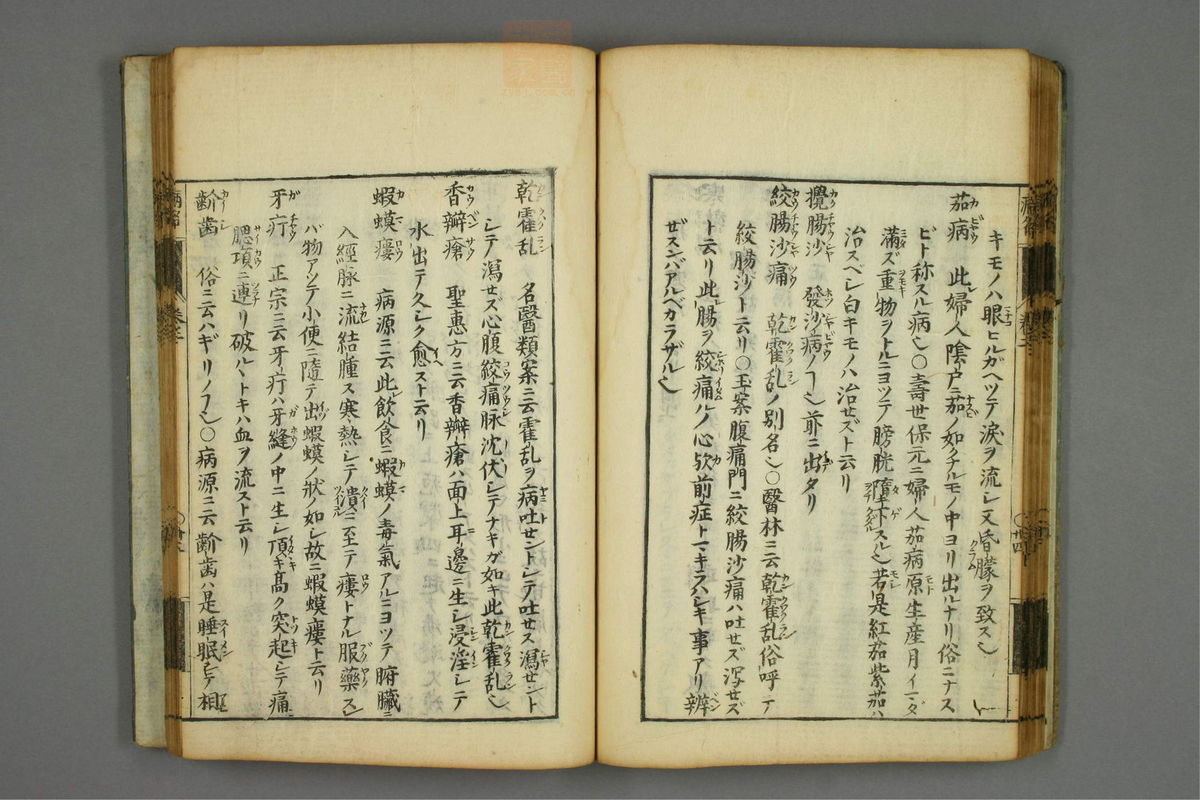 キモノハ眼ヒルガヘツテ涙ヲ流シ又昏朦ヲ致ス〆
茄病 此婦人陰戸ニ茄ノ如クナルモノ中ヨリ出ルナリ俗ニナス
ビト称スル病〆○壽世保元ニ婦人茄病原生産月イマダ
滿ズ重物ヲトルニヨツテ膀胱墮下スル〆若是紅茄紫茄ハ
治スベシ白キモノハ治セズト云リ
攪腸沙 發沙病ノヿ〆前ニ出タリ
絞腸沙痛 乾霍乱ノ別名〆○醫林ニ云乾霍乱俗呼テ
絞腸沙ト云リ○玉案腹痛門ニ絞腸沙痛ハ吐セズ泻セズ
ト云リ此腸ヲ絞痛ルノ心欤前症トマキラハシキ事アリ辨
ゼズンバアルベカラザル〆
乾霍乱 名醫類案ニ云霍乱ヲ病吐セントシテ吐セス瀉セント
シテ瀉セズ心腹絞痛脉沈伏シテナキガ如キ此乾霍乱〆
香瓣瘡 聖惠方ニ云香瓣瘡ハ面上耳邊ニ生シ浸淫シテ
水出テ久シク愈スト云リ
蝦蟆瘻 病源ニ云此飲食ニ蝦蟆ノ毒氣アルニヨツテ腑臓ニ
入經脉ニ流結腫ス寒熱シテ潰ニ至テ瘻トナル服藥スレ
バ物アツテ小便ニ隨テ出蝦蟆ノ狀ノ如シ故ニ蝦蟆瘻ト云リ
牙疔 正宗ニ云牙疔ハ牙縫ノ中ニ生シ頂キ髙ク突起シテ痛
腮項ニ連リ破ルヽトキハ血ヲ流スト云リ
齘歯 俗ニ云ハギリノヿ〆○病源ニ云齘歯ハ是睡眠シテ相